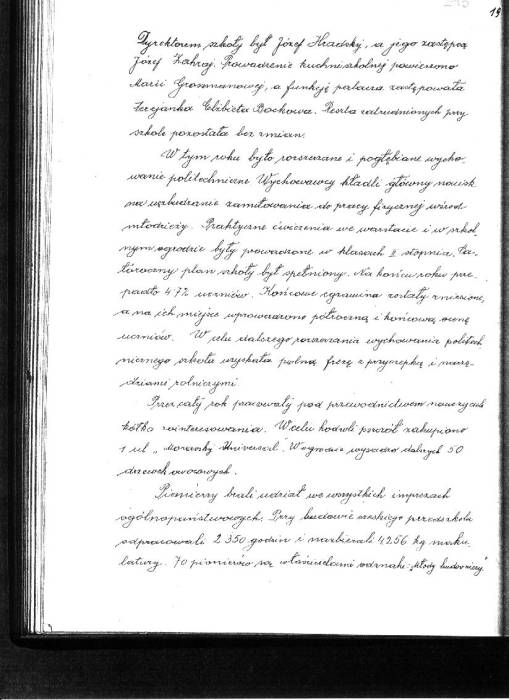 19
Dyrektorem szkoły był Józef Hradský, a jego zastępcą
Józef Zahraj. Prowadzenie kuchni szkolnej powierzono
Marii Grosmanowej, a funkcję palacza zastępowała
Serejanka Elżbieta Bockowa. Reszta zatrudnionych przy
szkole pozostała bez zmian.
W tym roku było rozszerzane i pogłębiane wycho-
wanie politechniczne Wychowawcy kładli główny nacisk
na wzbudzanie zamiłowania do pracy fizycznej wśród
młodzieży. Praktyczne ćwiczenia we warsztacie i w szkol-
nym ogrodzie były prowadzone w klasach 2 stopnia. Ca-
łoroczny plan szkoły był spełniony. Na końcu roku pre-
padło 4,7% uczniów. Końcowe egzamina zostały zniesione,
a na ich miejsce wprowadzono półroczną i końcową ocenę
uczniów. W celu dalszego rozszerzania wychowania politech-
nicznego szkoła uzyskała polną frezę z przyczepką i narzę-
dziami rolniczymi
Przez cały rok pracowały pod przewodnictwem nauczycieli
kółka zainteresowania. W celu hodowli pszczół zakupiono
1 ul „Moravský Universal". W ogrodzie wysadzono dalszych 50
drzewek owocowych.
Pionierzy brali udział we wszystkich imprezach
ogólnopaństwowych. Przy budowie czeskiego przedszkola
odpracowali 2 350 godzin i nazbierali 4256 kg maku-
latury. 70 pionierów są właścicielami odznaki: „Młody budowniczy"